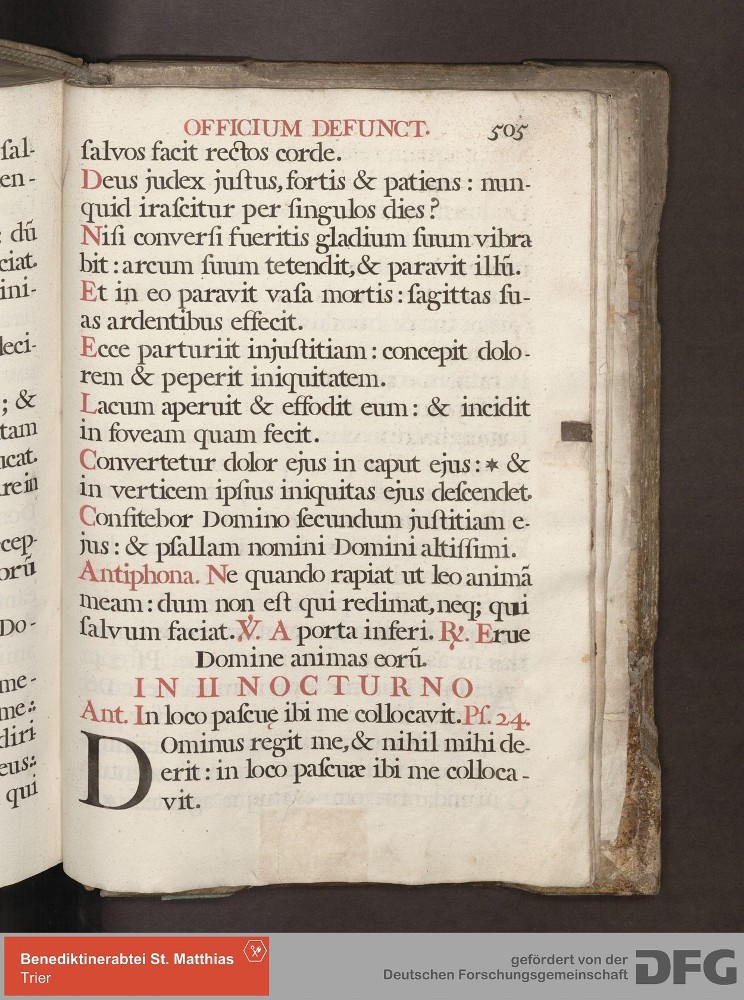 ſal-
en-
: dū
ciat.
ini-
leci-
; &
tam
icat.
rein
cep-
orū
Do-
me-
me:.
diri
eus:.
qui
OFFICIUM DEFUNCT. 505
ſalvos facit rectos corde.
Deus judex juſtus, fortis & patiens : nun-
quid iraſcitur per ſingulos dies ?
Niſi converſi fueritis gladium ſuum vibra
bit : arcum ſuum tetendit, & paravit illū.
Et in eo paravit vaſa mortis : ſagittas ſu-
as ardentibus effecit.
Ecce parturiit injuſtitiam : concepit dolo-
rem & peperit iniquitatem.
Lacum aperuit & effodit eum : & incidit
in foveam quam fecit.
Convertetur dolor ejus in caput ejus : * &
in verticem ipſius iniquitas ejus deſcendet.
Confitebor Domino ſecundum juſtitiam e-
jus : & pſallam nomini Domini altiſſimi.
Antiphona. Ne quando rapiat ut leo animā
meam : dum non eſt qui redimat, neq; qui
ſalvum faciat. ℣. A porta inferi. ℟. Erue
Domine animas eorū.
IN II NOCTURNO
Ant. In loco paſcuę ibi me collocavit. Pſ. 24.
DOminus regit me, & nihil mihi de-
erit : in loco paſcuæ ibi me colloca-
vit.
Benediktinerabtei St. Matthias
Trier
gefördert von der
Deutschen Forschungsgemeinschaft
DFG